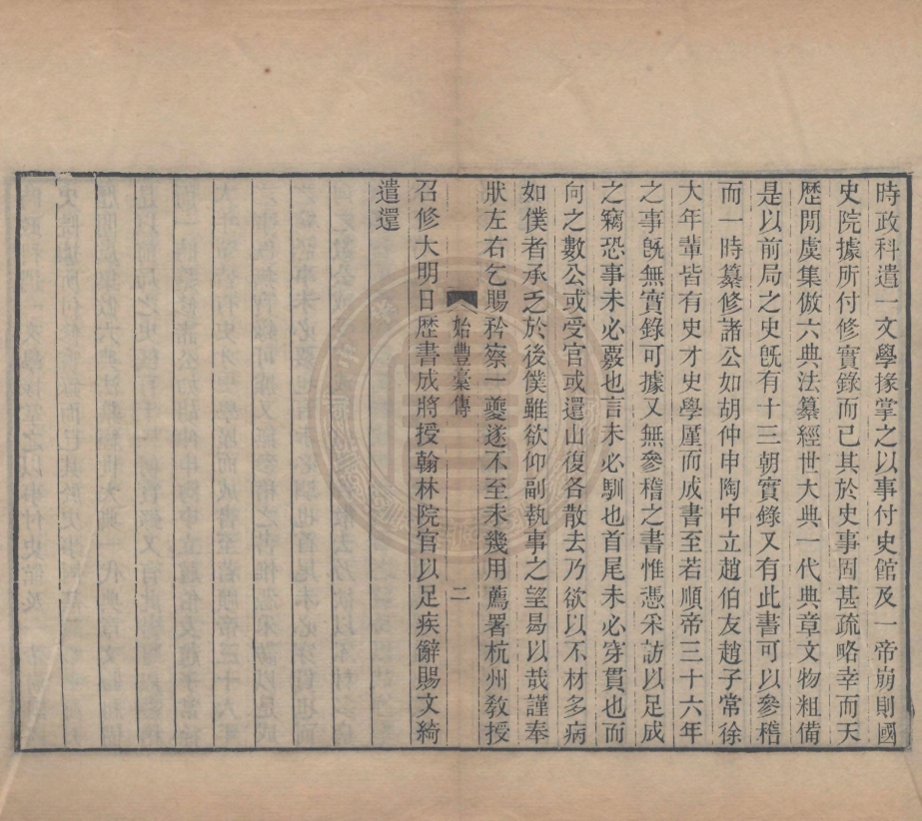 時政科遣一文學掾掌之以事付史館及一帝崩則國
史院據所付修實錄而已其於史事固甚疏略幸而天
歷閒虞集倣六典法纂經世大典一代典章文物粗備
是以前局之史旣有十三朝實錄又有此書可以參稽
而一時纂修諸公如胡仲申陶中立趙伯友趙子常徐
大年輩皆有史才史學厪而成書至若順帝三十六年
之事旣無實錄可據又無參稽之書惟憑采訪以足成
之竊恐事未必覈也言未必馴也首尾未必穿貫也而
向之數公或受官或還山復各散去乃欲以不材多病
如僕者承乏於後僕雖欲仰副執事之望曷以哉謹奉
狀左右乞賜矜察一夔遂不至未幾用薦署杭州敎授
始豐稾傳
二
召修大明日歷書成將授翰林院官以足疾辭賜文綺
遣還